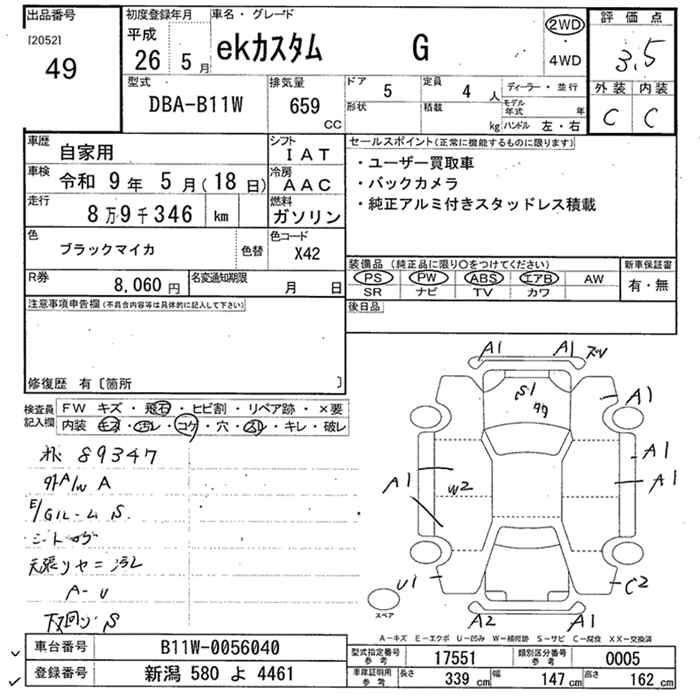 出品番号
[2052]
49
初度登録年月
平成
26 5月
車名・グレード
ekカスタム G
2WD
・
4WD
評価点
3.5
外装 内装
C C
型式
DBA-B11W
排気量
659
CC
ドア
5
形状
定員
4 人
積載
kg
ディーラー・並行
モデル
年式 年
ハンドル 左・右
車歴
自家用
シフト
I A T
車検
令和 9年 5月(18日)
冷房
A A C
走行
8万9千346 km
燃料
ガソリン
色
ブラックマイカ
色替
色コード
X42
R券
8,060円
名変通知期限
月 日
セールスポイント(正常に機能するものに限ります)
・ユーザー買取車
・バックカメラ
・純正アルミ付きスタッドレス積載
装備品(純正品に限り○をつけてください)
PS PW ABS エアB AW
SR ナビ TV カワ
新車保証書
有・無
後日品
注意事項申告欄(不具合内容等は具体的に記入して下さい)
修復歴 有〔箇所 〕
検査員
記入欄
FW キズ・飛石・ヒビ割・リペア跡・×要
内装 キズ・汚レ・コゲ・穴・スレ・キレ・破レ
89347
外A/W A
E/Gルーム S
天張リヤニ汚レ
A-U
下回り S
A1 A1
S1
A1
A1
A1
A1
W2
U1
C2
A2 A1
スペア
A-キズ E-エクボ U-凹み W-補修跡 S-サビ C-腐食 XX-交換済
車台番号
B11W-0056040
登録番号
新潟 580 よ 4461
型式指定番号
参考
17551
類別区分番号
参考
0005
車庫証明用
参考
長さ 339cm 幅 147cm 高さ 162cm